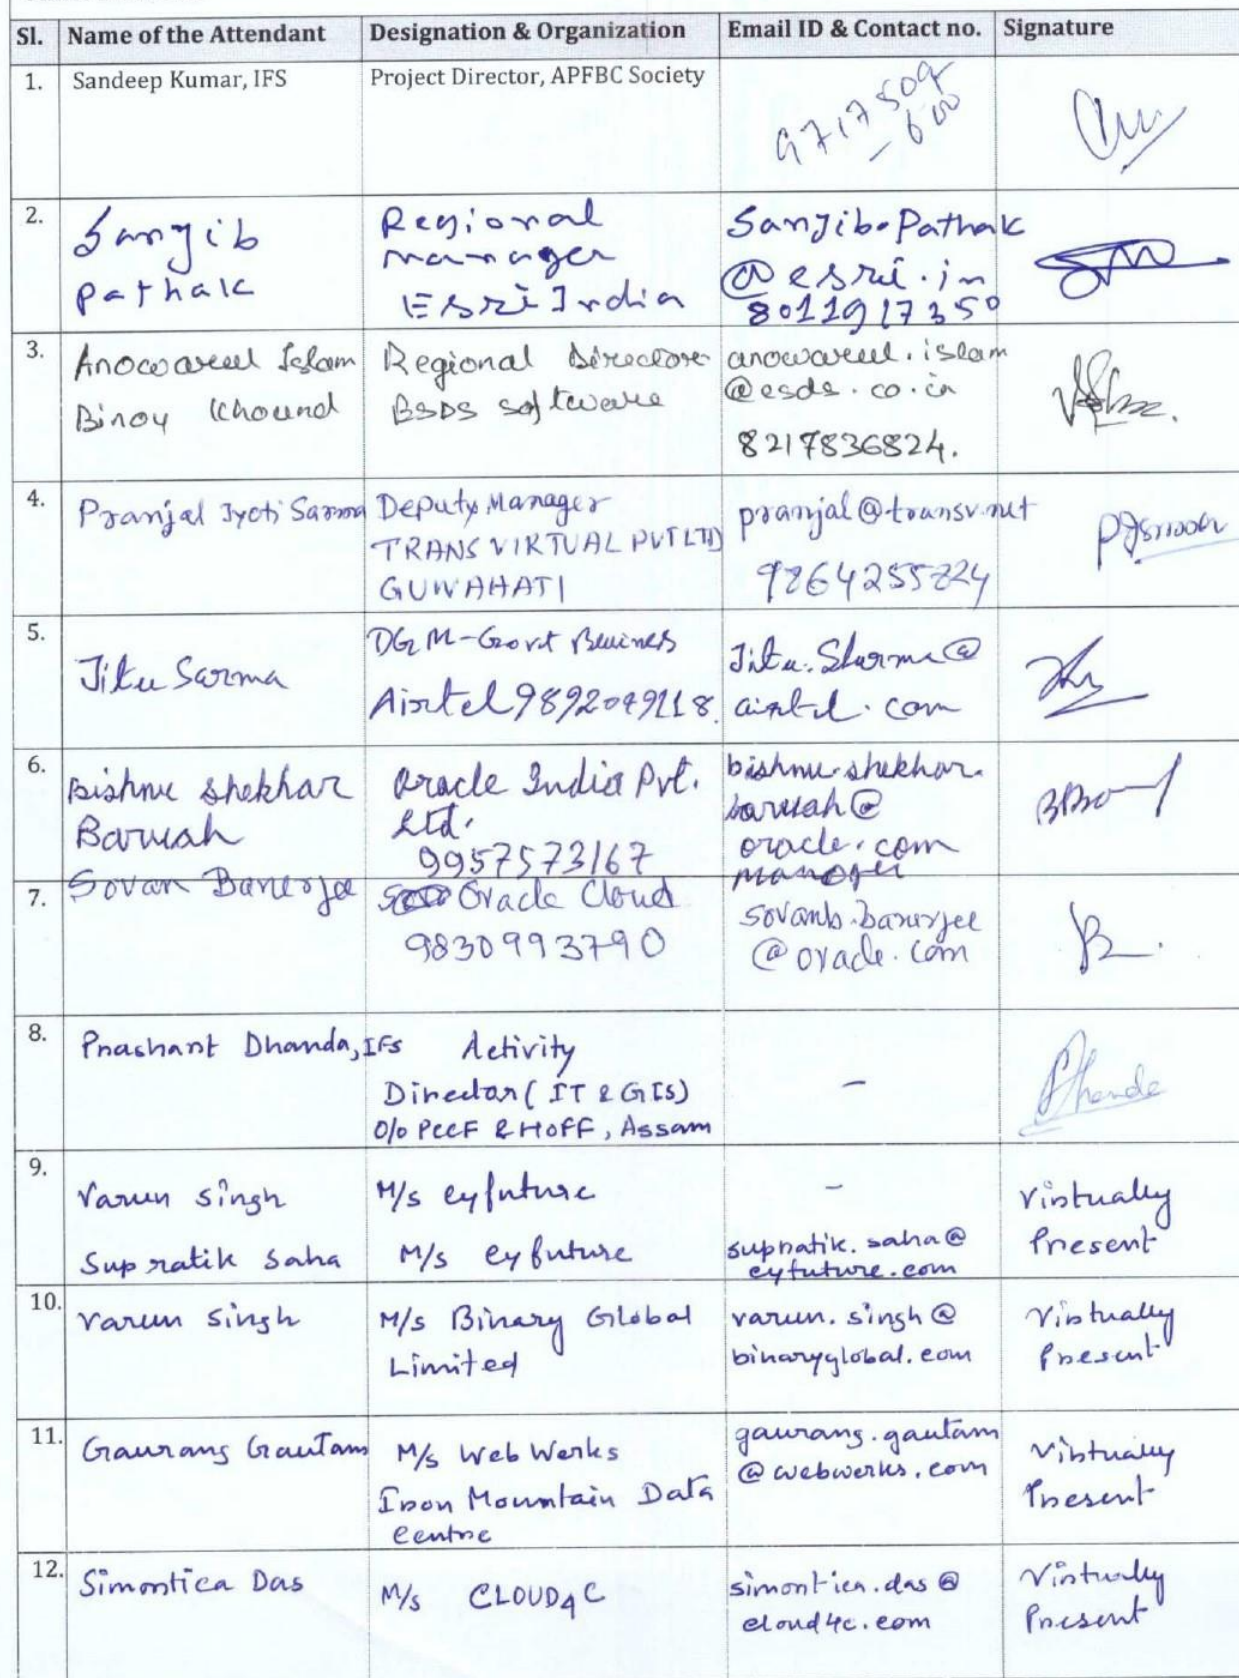 Sl. Name of the Attendant Designation & Organization Email ID & Contact no. Signature
1. Sandeep Kumar, IFS Project Director, APFBC Society
9717509
- 600
2. Sanjib
Pathak
Regional
manager
Esri India
Sanjib.Pathak
@esri.in
8011917350
3. Anowarul Islam
Binoy Khound
Regional Director
ESDS software
anowarul.islam
@esds.co.in
8217836824.
4. Pranjal Jyoti Sarma
Deputy Manager
TRANS VIRTUAL PVT LTD
GUWAHATI
pranjal@transv.net
9864255824
5. Jitu Sarma
DGM-Govt Business
Airtel 9892049118.
Jitu.Sharma@
airtel.com
6. Bishnu Shekhar
Baruah
Oracle India Pvt.
Ltd.
9957573167
bishnu.shekhar.
baruah@
oracle.com
manager
7. Sovan Banerjee
Oracle Cloud
9830993790
sovanb.banerjee
@oracle.com
8. Prashant Dhanda, IFS
Activity
Director (IT & GIS)
O/o PCCF & HoFF, Assam
-
Dhanda
9. Varun Singh M/s cyfuture - Virtually
Present
Supratik Saha M/s cyfuture
supratik.saha@
cyfuture.com
10. Varun Singh
M/s Binary Global
Limited
varun.singh@
binaryglobal.com
Virtually
Present
11. Gaurang Gautam
M/s Web Werks
Iron Mountain Data
Centre
gaurang.gautam
@webwerks.com
Virtually
Present
12. Simontica Das
M/s CLOUD4C
simontica.das@
cloud4c.com
Virtually
Present